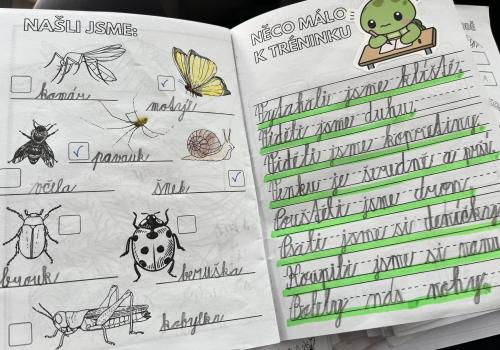 NAŠLI JSME:
komár
motýl
pavouk
včela
šnek
brouk
beruška
kobylka
NĚCO MÁLO
K TRÉNINKU
Vytahali jsme klíště.
Viděli jsme duhu.
Viděli jsme kopretiny.
Venku je
Pouštěli jsme dron.
Psali jsme si
Koupili jsme si
Bolely nás nohy.